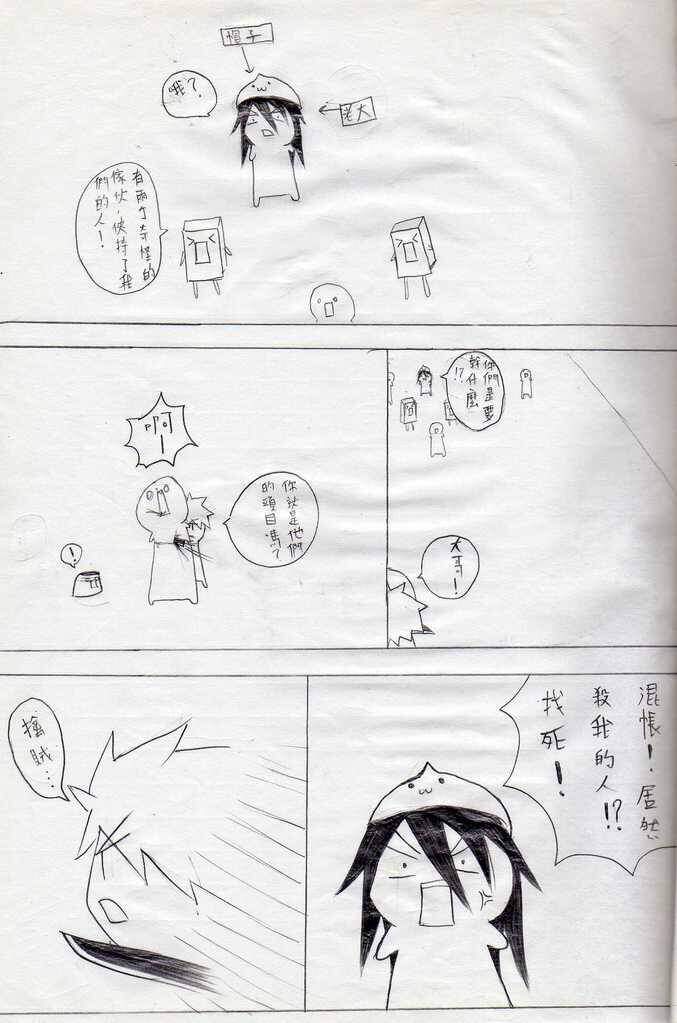 帽子
哦?
老大
有兩个奇怪的
傢伙,俠持了我
們的人!
你們是要
幹什麼
!?
大哥!
啊!
你就是他們
的頭目嗎?
!
混帳!居然
殺我的人!?
找死!
擒賊…